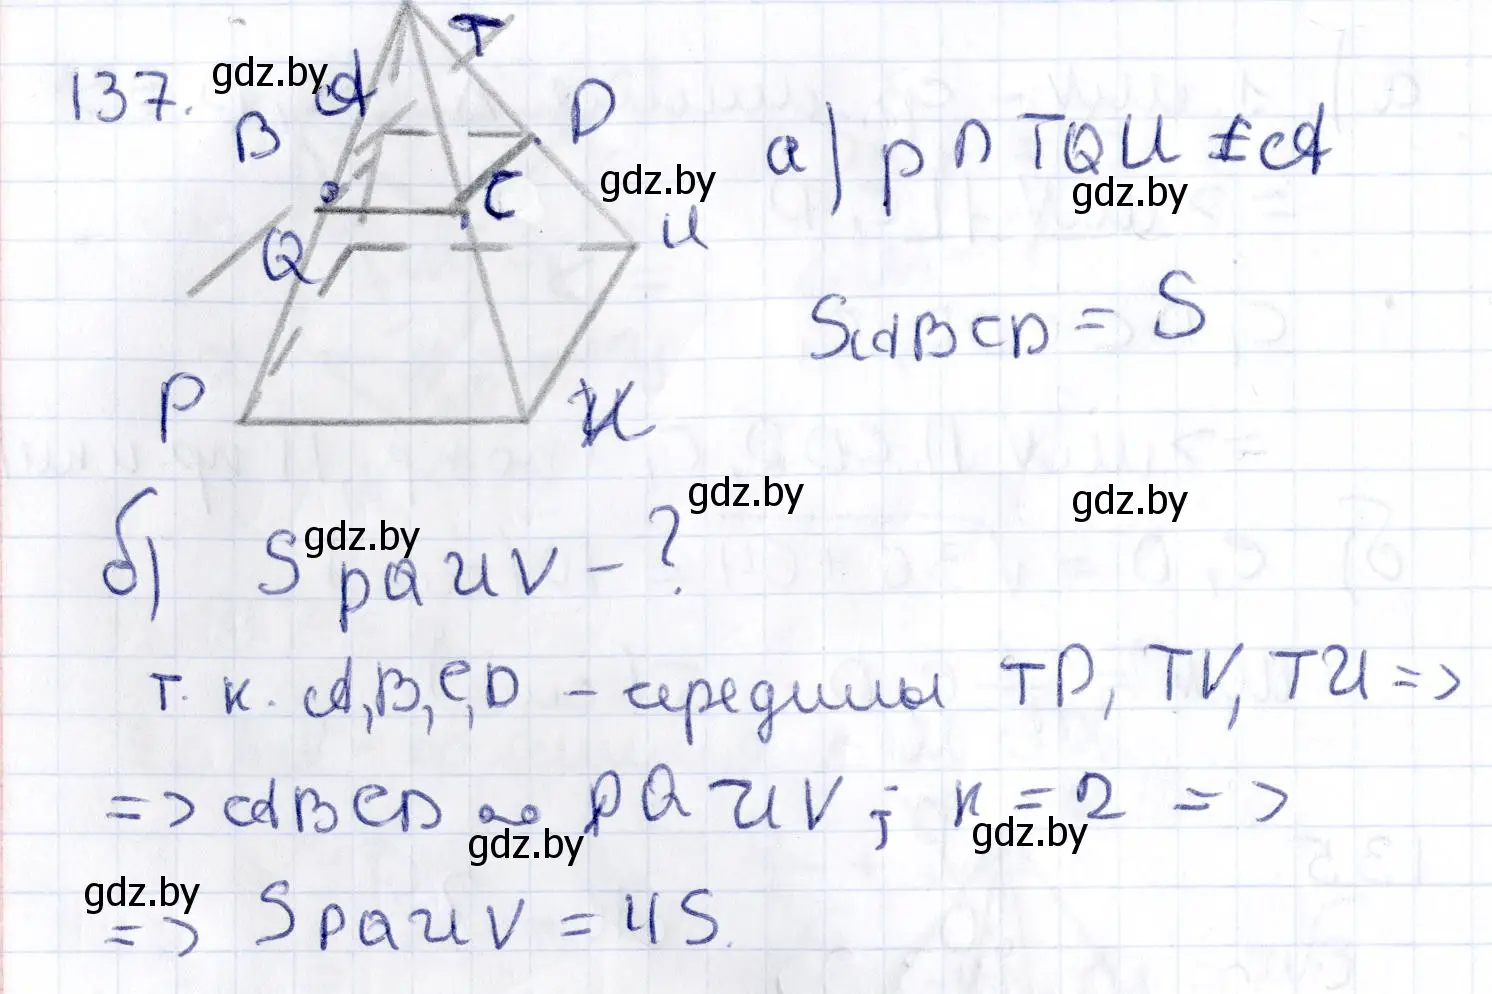 137.
gdz.by
A
T
B
D
gdz.by
C
Q
U
P
а) p ∩ TQU = A
gdz.by
S ABCD = S
gdz.by
gdz.by
б) S PQUV - ?
gdz.by
т. к. A, B, C, D - середины TP, TV, TU =>
=> ABCD ∞ PQUV; k = 2 =>
gdz.by
gdz.by
gdz.by
=> S PQUV = 4S.